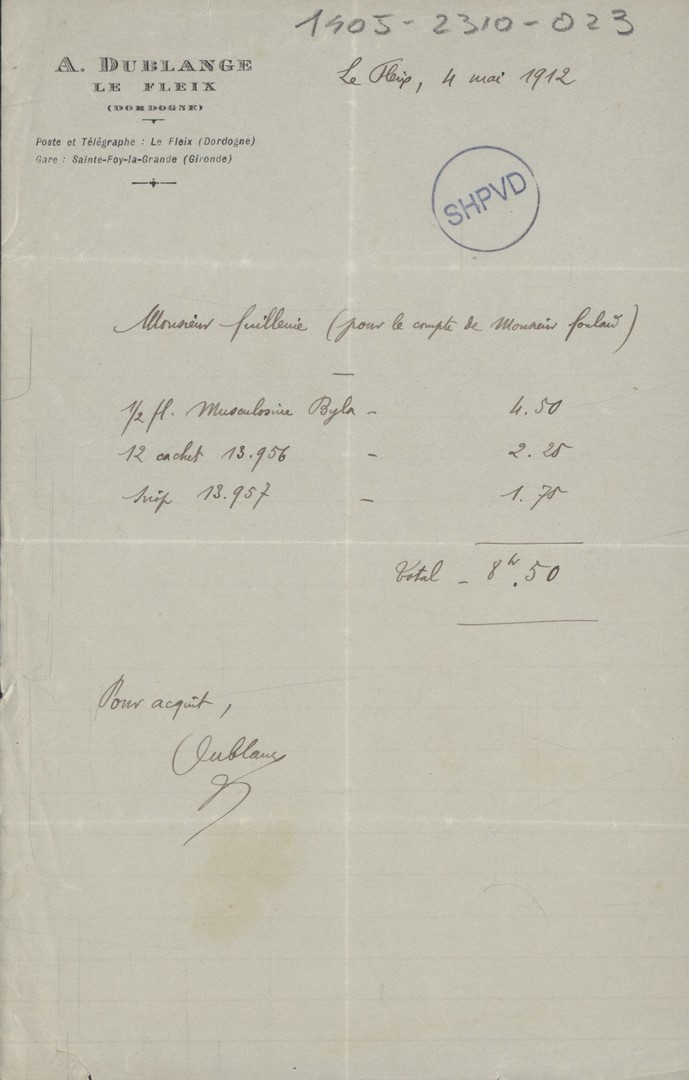 1405-2310-023
A. DUBLANGE
LE FLEIX
(DORDOGNE)
Poste et Télégraphe : Le Fleix (Dordogne)
Gare : Sainte-Foy-la-Grande (Gironde)
Le Fleix, 4 mai 1912
SHPVD
Monsieur (pour le compte de Monsieur )
1/2 fl. Musculosine Byla - 4.50
12 cachet 13.956 - 2.25
Sirop 13.957 - 1.75
Total - 8fr.50
Pour acquit,
Dublange